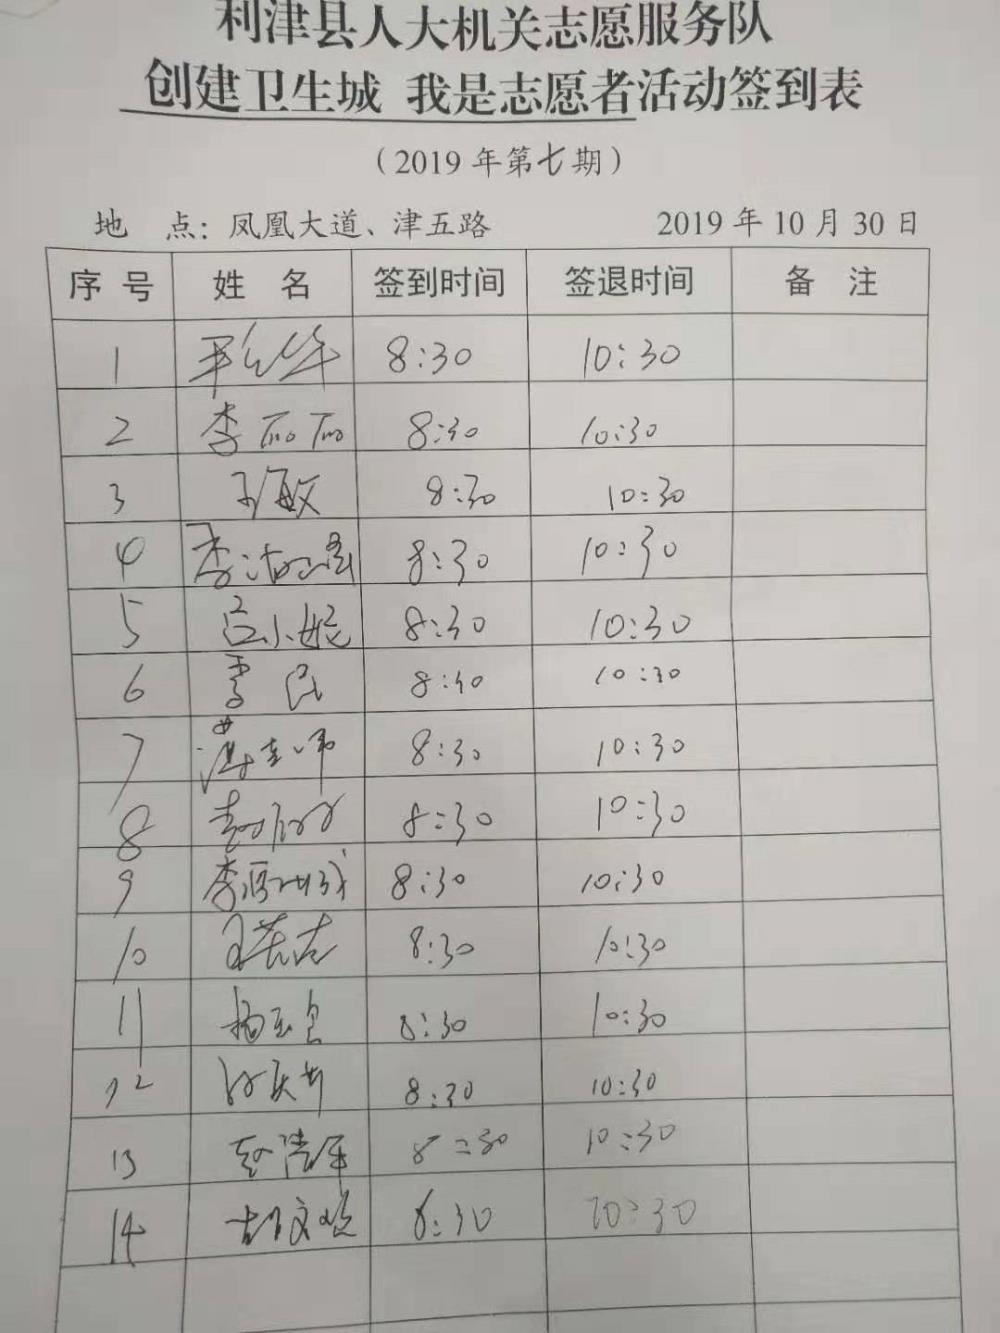 利津县人大机关志愿服务队
创建卫生城 我是志愿者活动签到表
（2019 年第七期）
地 点：凤凰大道、津五路 2019 年 10 月 30 日
序 号 姓 名 签到时间 签退时间 备 注
1 8:30 10:30
2 李丽丽 8:30 10:30
3 8:30 10:30
4 李 8:30 10:30
5 吕小妮 8:30 10:30
6 李民 8:30 10:30
7 8:30 10:30
8 8:30 10:30
9 李 8:30 10:30
10 王 8:30 10:30
11 杨玉 8:30 10:30
12 8:30 10:30
13 赵 8:30 10:30
14 胡文 8:30 10:30